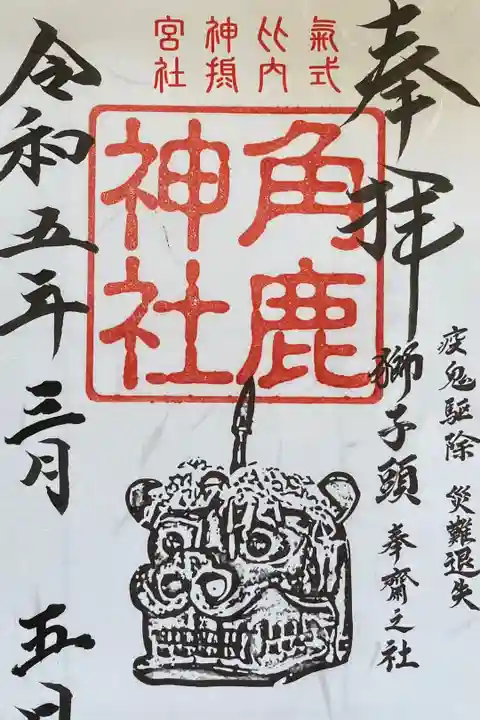 奉拝
疫鬼駆除 災難退失
獅子頭 奉齋之社
氣比神宮
式内摂社
角鹿神社
令和五年三月五日